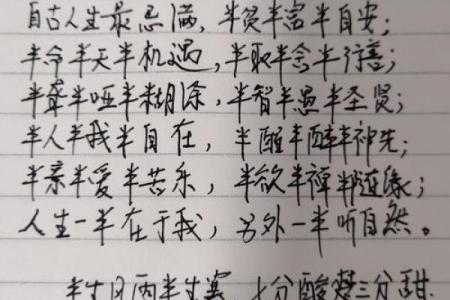 自古人生最忌满，半贫半富半自安；
半命半天半机遇，半取半舍半行善；
半聋半哑半糊涂，半智半愚半圣贤；
半人半我半自在，半醒半醉半神仙；
半亲半爱半苦乐，半欲半禅半随缘；
人生一半在于我，另外一半听自然。
半生风雨半生寒，七分酸楚三分甜